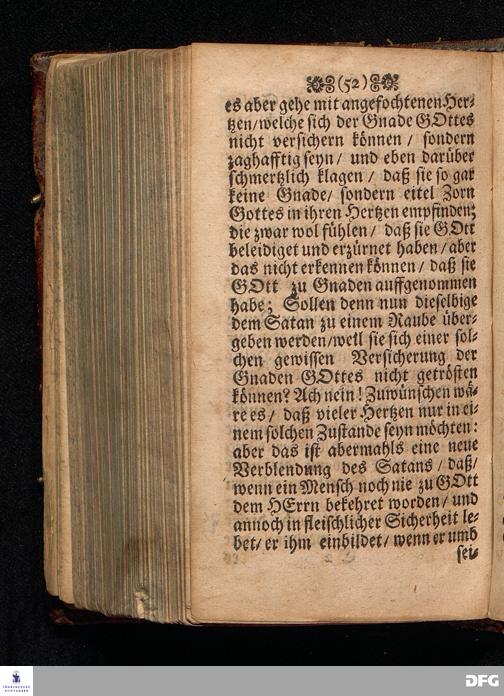 (52)
es aber gehe mit angefochtenen Her-
tzen/welche sich der Gnade GOttes
nicht versichern können / sondern
zaghafftig seyn / und eben darüber
schmertzlich klagen / daß sie so gar
keine Gnade/ sondern eitel Zorn
Gottes in ihren Hertzen empfinden;
die zwar wol fühlen / daß sie GOtt
beleidiget und erzürnet haben / aber
das nicht erkennen können / daß sie
GOtt zu Gnaden auffgenommen
habe; Sollen denn nun dieselbige
dem Satan zu einem Raube über-
geben werden/weil sie sich einer sol-
chen gewissen Versicherung der
Gnaden GOttes nicht getrösten
können? Ach nein! Zuwünschen wä-
re es / daß vieler Hertzen nur in ei-
nem solchen Zustande seyn möchten:
aber das ist abermahls eine neue
Verblendung des Satans / daß/
wenn ein Mensch noch nie zu GOtt
dem HErrn bekehret worden / und
annoch in fleischlicher Sicherheit le-
bet/ er ihm einbildet/ wenn er umb
sei-
FRANCKESCHE
STIFTUNGEN
DFG